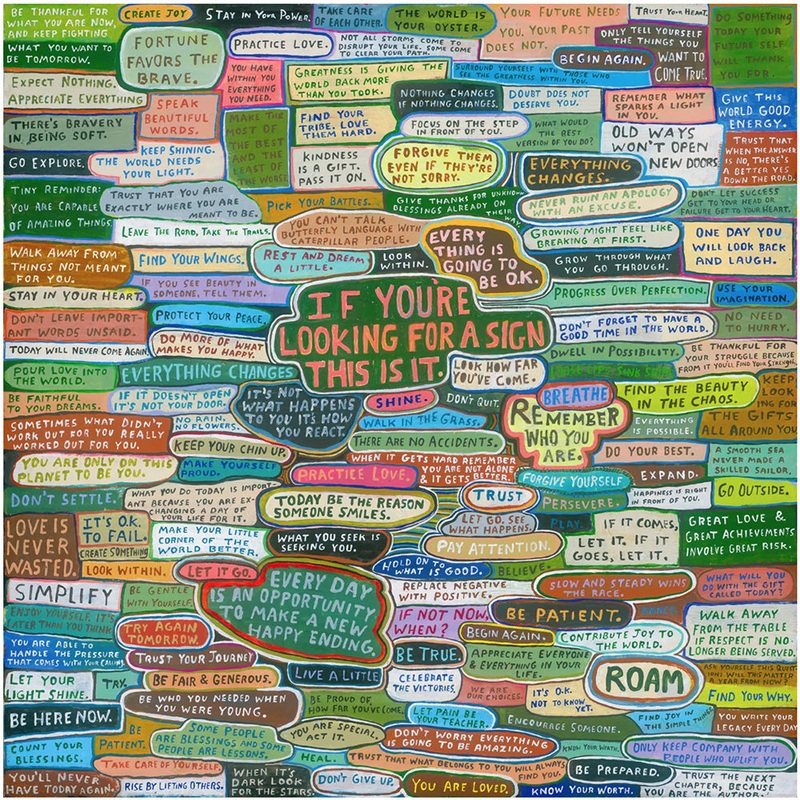 BE THANKFUL FOR
WHAT YOU ARE NOW,
AND KEEP FIGHTING
WHAT YOU WANT TO
BE TOMORROW.
CREATE JOY
STAY IN YOUR POWER.
TAKE CARE
OF EACH OTHER.
THE WORLD IS
YOUR OYSTER.
YOUR FUTURE NEEDS
YOU. YOUR PAST
DOES NOT.
TRUST YOUR HEART.
DO SOMETHING
TODAY YOUR
FUTURE SELF
WILL THANK
YOU FOR.
FORTUNE
FAVORS THE
BRAVE.
PRACTICE LOVE.
NOT ALL STORMS COME TO
DISRUPT YOUR LIFE. SOME COME
TO CLEAR YOUR PATH.
BEGIN AGAIN.
ONLY TELL YOURSELF
THE THINGS YOU
WANT TO
COME TRUE.
EXPECT NOTHING.
APPRECIATE EVERYTHING
YOU HAVE
WITHIN YOU
EVERYTHING
YOU NEED.
GREATNESS IS GIVING THE
WORLD BACK MORE
THAN YOU TOOK.
SURROUND YOURSELF WITH THOSE WHO
SEE THE GREATNESS WITHIN YOU.
SPEAK
BEAUTIFUL
WORDS.
NOTHING CHANGES
IF NOTHING CHANGES.
DOUBT DOES NOT
DESERVE YOU.
REMEMBER WHAT
SPARKS A LIGHT
IN YOU.
GIVE THIS
WORLD GOOD
ENERGY.
THERE'S BRAVERY
IN BEING SOFT.
MAKE THE
MOST OF
THE BEST
AND THE
LEAST OF
THE WORST
FIND YOUR
TRIBE. LOVE
THEM HARD.
FOCUS ON THE STEP
IN FRONT OF YOU.
WHAT WOULD
THE BEST
VERSION OF YOU DO?
OLD WAYS
WON'T OPEN
NEW DOORS
TRUST THAT
WHEN THE ANSWER
IS NO, THERE'S
A BETTER YES
DOWN THE ROAD.
GO EXPLORE.
KEEP SHINING.
THE WORLD NEEDS
YOUR LIGHT.
KINDNESS
IS A GIFT.
PASS IT ON.
FORGIVE THEM
EVEN IF THEY'RE
NOT SORRY.
EVERYTHING
CHANGES.
TINY REMINDER:
YOU ARE CAPABLE
OF AMAZING THINGS.
TRUST THAT YOU ARE
EXACTLY WHERE YOU ARE
MEANT TO BE.
PICK YOUR BATTLES.
GIVE THANKS FOR UNKNOWN
BLESSINGS ALREADY ON
THEIR WAY
NEVER RUIN AN APOLOGY
WITH AN EXCUSE.
DON'T LET SUCCESS
GET TO YOUR HEAD OR
FAILURE GET TO YOUR HEART.
LEAVE THE ROAD, TAKE THE TRAILS.
YOU CAN'T TALK
BUTTERFLY LANGUAGE WITH
CATERPILLAR PEOPLE.
EVERY
THING IS
GOING TO
BE O.K.
GROWING MIGHT FEEL LIKE
BREAKING AT FIRST.
ONE DAY YOU
WILL LOOK BACK
AND LAUGH.
WALK AWAY FROM
THINGS NOT MEANT
FOR YOU.
FIND YOUR WINGS.
REST AND DREAM
A LITTLE.
LOOK
WITHIN.
GROW THROUGH WHAT
YOU GO THROUGH.
STAY IN YOUR HEART.
IF YOU SEE BEAUTY IN
SOMEONE, TELL THEM.
IF YOU'RE
LOOKING FOR A SIGN
THIS IS IT.
PROGRESS OVER PERFECTION.
USE YOUR
IMAGINATION.
DON'T LEAVE IMPORT-
ANT WORDS UNSAID.
PROTECT YOUR PEACE.
DON'T FORGET TO HAVE A
GOOD TIME IN THE WORLD.
NO NEED
TO HURRY.
TODAY WILL NEVER COME AGAIN.
DO MORE OF WHAT
MAKES YOU HAPPY.
DWELL IN POSSIBILITY.
BE THANKFUL FOR
YOUR STRUGGLE BECAUSE
FROM IT YOU'LL FIND YOUR STRENGTH.
POUR LOVE INTO
THE WORLD.
EVERYTHING CHANGES
LOOK HOW FAR
YOU'VE COME.
BE FAITHFUL
TO YOUR DREAMS.
IF IT DOESN'T OPEN
IT'S NOT YOUR DOOR.
IT'S NOT
WHAT HAPPENS
TO YOU IT'S HOW
YOU REACT.
SHINE.
DON'T QUIT.
BREATHE
FIND THE BEAUTY
IN THE CHAOS.
KEEP
LOOK
ING FOR
THE GIFTS
ALL AROUND YOU
SOMETIMES WHAT DIDN'T
WORK OUT FOR YOU REALLY
WORKED OUT FOR YOU.
NO RAIN.
NO FLOWERS.
WALK IN THE GRASS.
REMEMBER
WHO YOU
ARE.
EVERYTHING
IS POSSIBLE.
KEEP YOUR CHIN UP.
THERE ARE NO ACCIDENTS.
YOU ARE ONLY ON THIS
PLANET TO BE YOU.
MAKE YOURSELF
PROUD.
WHEN IT GETS HARD REMEMBER
YOU ARE NOT ALONE
& IT GETS BETTER
PRACTICE LOVE.
DO YOUR BEST.
A SMOOTH SEA
NEVER MADE A
SKILLED SAILOR.
FORGIVE YOURSELF
EXPAND.
DON'T SETTLE.
WHAT YOU DO TODAY IS IMPORT-
ANT BECAUSE YOU ARE EX-
CHANGING A DAY OF
YOUR LIFE FOR IT.
TODAY BE THE REASON
SOMEONE SMILES.
TRUST
PERSEVERE.
HAPPINESS IS RIGHT
IN FRONT OF YOU.
GO OUTSIDE.
LOVE IS
NEVER
WASTED.
IT'S O.K.
TO FAIL.
CREATE SOMETHING
MAKE YOUR LITTLE
CORNER OF THE
WORLD BETTER.
WHAT YOU SEEK IS
SEEKING YOU.
LET GO. SEE
WHAT HAPPENS.
PLAY.
IF IT COMES,
LET IT. IF IT
GOES, LET IT.
GREAT LOVE &
GREAT ACHIEVEMENTS
INVOLVE GREAT RISK.
PAY ATTENTION.
LOOK WITHIN.
LET IT GO.
HOLD ON TO
WHAT IS GOOD.
BELIEVE.
SIMPLIFY
BE GENTLE
WITH YOURSELF.
EVERY DAY
IS AN OPPORTUNITY
TO MAKE A NEW
HAPPY ENDING.
REPLACE NEGATIVE
WITH POSITIVE.
SLOW AND STEADY WINS
THE RACE.
WHAT WILL YOU
DO WITH THE GIFT
CALLED TODAY?
ENJOY YOURSELF, IT'S
LATER THAN YOU THINK
TRY AGAIN
TOMORROW.
IF NOT NOW,
WHEN?
BE PATIENT.
DANCE.
WALK AWAY
FROM THE TABLE
IF RESPECT IS NO
LONGER BEING SERVED.
BEGIN AGAIN.
CONTRIBUTE JOY TO
THE WORLD.
YOU ARE ABLE TO
HANDLE THE PRESSURE
THAT COMES WITH YOUR CALLING.
TRUST YOUR JOURNEY
BE TRUE.
APPRECIATE EVERYONE
& EVERYTHING IN YOUR
LIFE.
ROAM
ASK YOURSELF THIS QUEST
ION: WILL THIS MATTER
A YEAR FROM NOW?
LET YOUR
LIGHT SHINE.
TRY.
BE FAIR & GENEROUS.
LIVE A LITTLE
CELEBRATE
THE VICTORIES.
WE ARE
OUR CHOICES.
IT'S O.K.
NOT TO KNOW
YET.
FIND YOUR WHY.
BE HERE NOW.
BE WHO YOU NEEDED WHEN
YOU WERE YOUNG.
BE PROUD OF
HOW FAR YOU'VE COME.
LET PAIN BE
YOUR TEACHER.
ENCOURAGE SOMEONE.
FIND JOY IN
THE SIMPLE THINGS
YOU WRITE YOUR
LEGACY EVERY DAY
COUNT YOUR
BLESSINGS.
BE
PATIENT.
SOME PEOPLE
ARE BLESSINGS AND SOME
PEOPLE ARE LESSONS.
YOU ARE SPECIAL,
ACT IT.
DON'T WORRY EVERYTHING
IS GOING TO BE AMAZING.
KNOW YOUR WORTH.
ONLY KEEP COMPANY WITH
PEOPLE WHO UPLIFT YOU.
TAKE CARE OF YOURSELF.
HEAL.
TRUST THAT WHAT BELONGS TO YOU WILL ALWAYS
FIND YOU.
BE PREPARED.
YOU'LL NEVER
HAVE TODAY AGAIN.
RISE BY LIFTING OTHERS.
WHEN IT'S
DARK LOOK
FOR THE STARS.
DON'T GIVE UP.
YOU ARE LOVED.
KNOW YOUR WORTH.
TRUST THE NEXT
CHAPTER, BECAUSE
YOU ARE THE AUTHOR.